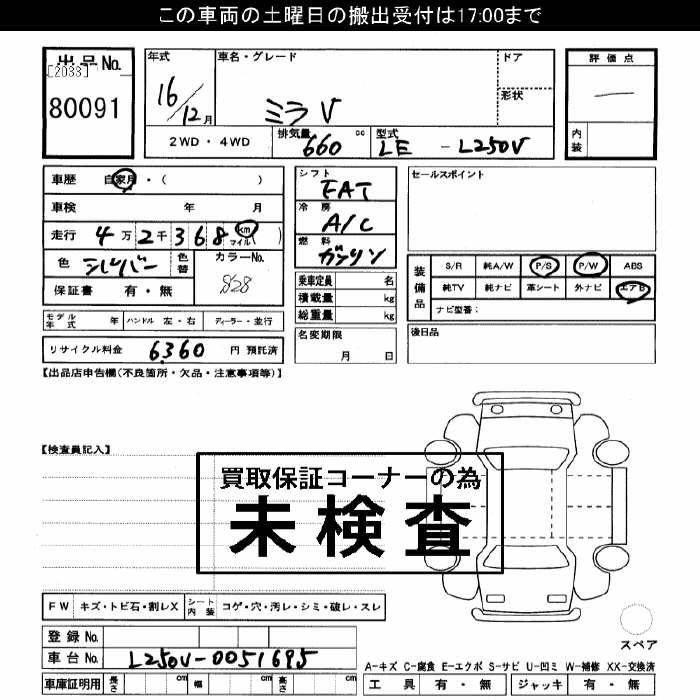 この車両の土曜日の搬出受付は17:00まで
出品No.
[2033]
80091
年式
16/12月
車名・グレード
ミラV
ドア
形状
評価点
—
内装
2WD・4WD
排気量 660 cc
型式 LE - L250V
車歴 自家用・( )
車検 年 月
走行 4万2千368 km マイル( )
色 シルバー 色替
カラーNo.
S28
保証書 有・無
モデル年式 年 ハンドル 左・右 ディーラー・並行
リサイクル料金 6360 円 預託済
シフト FAT
冷房 A/C
燃料 ガソリン
乗車定員 名
積載量 kg
総重量 kg
名変期限
月 日
セールスポイント
装備品
S/R 純A/W P/S P/W ABS
純TV 純ナビ 革シート 外ナビ エアB
ナビ型番:
後日品
【出品店申告欄(不良箇所・欠品・注意事項等)】
【検査員記入】
買取保証コーナーの為
未検査
FW キズ・トビ石・割レX シート内装 コゲ・穴・汚レ・シミ・破レ・スレ
登録No.
車台No. L250V-0051695
車庫証明用 長さ cm 幅 cm 高さ cm
スペア
A-キズ C-腐食 E-エクボ S-サビ U-凹ミ W-補修 XX-交換済
工具 有・無 ジャッキ 有・無